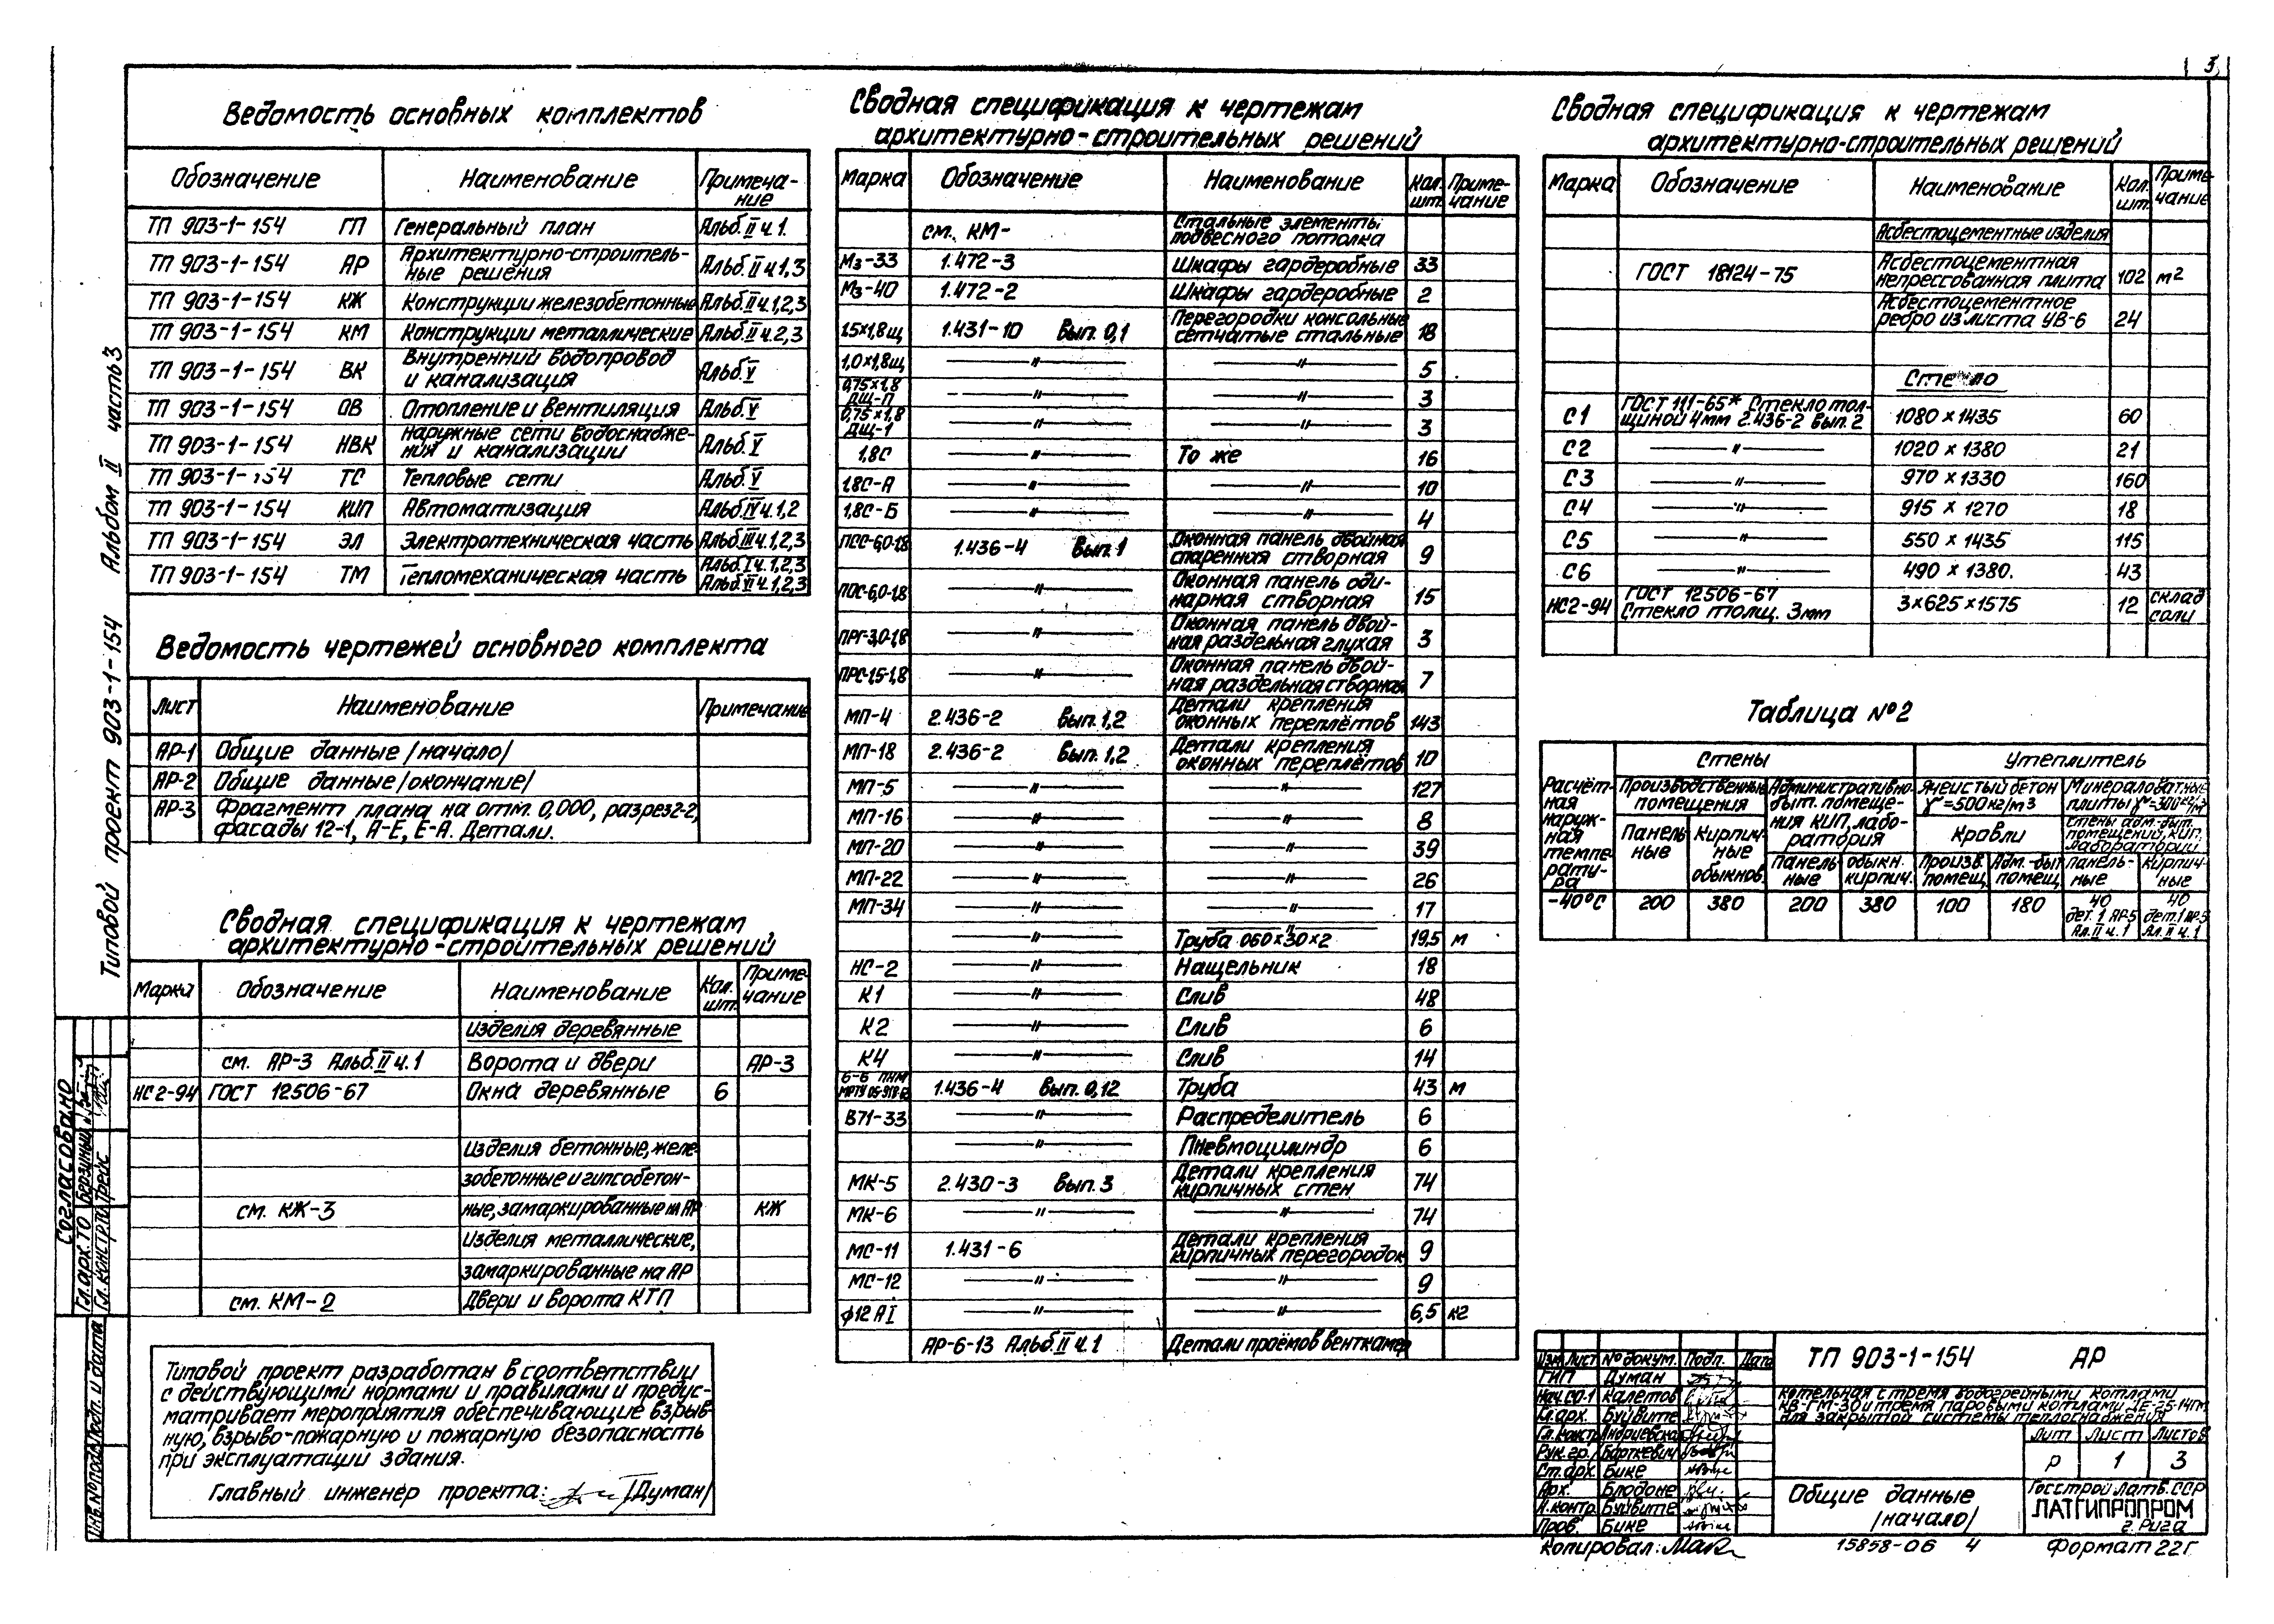 3
Типовой проект 903-1-154 Альбом II часть 3
Ведомость основных комплектов
Обозначение Наименование Примеча-
ние
ТП 903-1-154 ГП Генеральный план Альб. II ч.1.
ТП 903-1-154 АР Архитектурно-строитель-
ные решения Альб. II ч.1,3
ТП 903-1-154 КЖ Конструкции железобетонные Альб. II ч.1,2,3
ТП 903-1-154 КМ Конструкции металлические Альб. II ч.2,3
ТП 903-1-154 ВК Внутренний водопровод
и канализация Альб. V
ТП 903-1-154 ОВ Отопление и вентиляция Альб. V
ТП 903-1-154 НВК Наружные сети водоснабже-
ния и канализации Альб. V
ТП 903-1-154 ТС Тепловые сети Альб. V
ТП 903-1-154 КИП Автоматизация Альб. IV ч.1,2
ТП 903-1-154 ЭЛ Электротехническая часть Альб. III ч.1,2,3
ТП 903-1-154 ТМ Тепломеханическая часть Альб. I ч.1,2,3
Альб. VI ч.1,2,3
Ведомость чертежей основного комплекта
Лист Наименование Примечание
АР-1 Общие данные /начало/
АР-2 Общие данные /окончание/
АР-3 Фрагмент плана на отм. 0,000, разрез 2-2,
фасады 12-1, А-Е, Е-А. Детали.
Сводная спецификация к чертежам
архитектурно-строительных решений
Марка Обозначение Наименование Кол. шт. Приме-
чание
Изделия деревянные
см. АР-3 Альб. II ч.1 Ворота и двери АР-3
НС2-94 ГОСТ 12506-67 Окна деревянные 6
Изделия бетонные, желе-
зобетонные и гипсобетон-
см. КЖ-3 ные, замаркированные на АР КЖ
Изделия металлические,
замаркированные на АР
см. КМ-2 Двери и ворота КТП
Типовой проект разработан в соответствии
с действующими нормами и правилами и предус-
матривает мероприятия обеспечивающие взрыв-
ную, взрыво-пожарную и пожарную безопасность
при эксплуатации здания.
Главный инженер проекта: /Думан/
Сводная спецификация к чертежам
архитектурно-строительных решений
Марка Обозначение Наименование Кол. шт. Приме-
чание
см. КМ- Стальные элементы
подвесного потолка
М3-33 1.472-3 Шкафы гардеробные 33
М3-40 1.472-2 Шкафы гардеробные 2
1,5×1,8щ 1.431-10 Вып. 0,1 Перегородки консольные
сетчатые стальные 18
1,0×1,8щ —〃— —〃— 5
0,75×1,8
ДЩ-П —〃— —〃— 3
0,75×1,8
ДЩ-1 —〃— —〃— 3
1,8С —〃— То же 16
1,8С-А —〃— —〃— 10
1,8С-Б —〃— —〃— 4
ПСС-6,0-1,8 1.436-4 Вып. 1 Оконная панель двойная
спаренная створная 9
ПОС-6,0-1,8 —〃— Оконная панель оди-
нарная створная 15
ПРГ-3,0-1,8 —〃— Оконная панель двой-
ная раздельная глухая 3
ПРС-1,5-1,8 —〃— Оконная панель двой-
ная раздельная створная 7
МП-4 2.436-2 Вып. 1,2 Детали крепления
оконных переплётов 143
МП-18 2.436-2 Вып. 1,2 Детали крепления
оконных переплётов 10
МП-5 —〃— —〃— 127
МП-16 —〃— —〃— 8
МП-20 —〃— —〃— 39
МП-22 —〃— —〃— 26
МП-34 —〃— —〃— 17
—〃— Труба О60×30×2 19,5 м
НС-2 —〃— Нащельник 18
К1 —〃— Слив 48
К2 —〃— Слив 6
К4 —〃— Слив 14
1.436-4 Вып. 0,12 Труба 43 м
В71-33 —〃— Распределитель 6
—〃— Пневмоцилиндр 6
МК-5 2.430-3 Вып. 3 Детали крепления
кирпичных стен 74
МК-6 —〃— —〃— 74
МС-11 1.431-6 Детали крепления
кирпичных перегородок 9
МС-12 —〃— —〃— 9
ϕ12 АI —〃— —〃— 6,5 кг
АР-6-13 Альб. II ч.1 Детали проёмов венткамер
Сводная спецификация к чертежам
архитектурно-строительных решений
Марка Обозначение Наименование Кол. шт. Приме-
чание
Асбестоцементные изделия
ГОСТ 18124-75 Асбестоцементная
непрессованная плита 102 м²
Асбестоцементное
ребро из листа УВ-6 24
Стекло
С1 ГОСТ 111-65* Стекло тол-
щиной 4мм 2.436-2 вып. 2 1080×1435 60
С2 —〃— 1020×1380 21
С3 —〃— 970×1330 160
С4 —〃— 915×1270 18
С5 —〃— 550×1435 115
С6 —〃— 490×1380. 43
НС2-94 ГОСТ 12506-67
Стекло толщ. 3мм 3×625×1575 12 склад
соли
Таблица №2
Расчёт-
ная
наруж-
ная
темпе-
рату-
ра
Стены Утеплитель
Производственные
помещения
Административно-
быт. помеще-
ния КИП, лабо-
ратория
Ячеистый бетон
γ=500кг/м3
Минераловатные
плиты γ=300кг/м3
Панель-
ные
Кирпич-
ные
обыкнов.
Кровли
Стены адм.-быт.
помещений, КИП,
лаборатории
Панель-
ные
обыкн.
кирпич.
Произв.
помещ.
Адм.-быт
помещ.
Панель-
ные
Кирпич-
ные
-40°С 200 380 200 380 100 180 40
дет. 1 АР-5
Ал. II ч.1
40
дет. 1 АР-5
Ал. II ч.1
Согласовано
Гл. арх. ТО Берзиньш
Гл. констр. ТО Трейс
Инв. № подл. Подп. и дата
Изм. Лист № докум. Подп. Дата
ГИП Думан
Нач. СО-1 Калетов
Гл. арх. Буйвите
Гл. констр. Андриевская
Рук. гр. Барткевич
Ст. арх. Бике
Арх. Блодоне
Н. контр. Буйвите
Пров. Бике
ТП 903-1-154 АР
Котельная с тремя водогрейными котлами
КВ-ГМ-30 и тремя паровыми котлами ДЕ-25-14ГМ
для закрытой системы теплоснабжения
Лит Лист Листов
Р 1 3
Общие данные
/начало/
Госстрой Латв. ССР
ЛАТГИПРОПРОМ
г. Рига
Копировал:
15858-06 4
Формат 22г